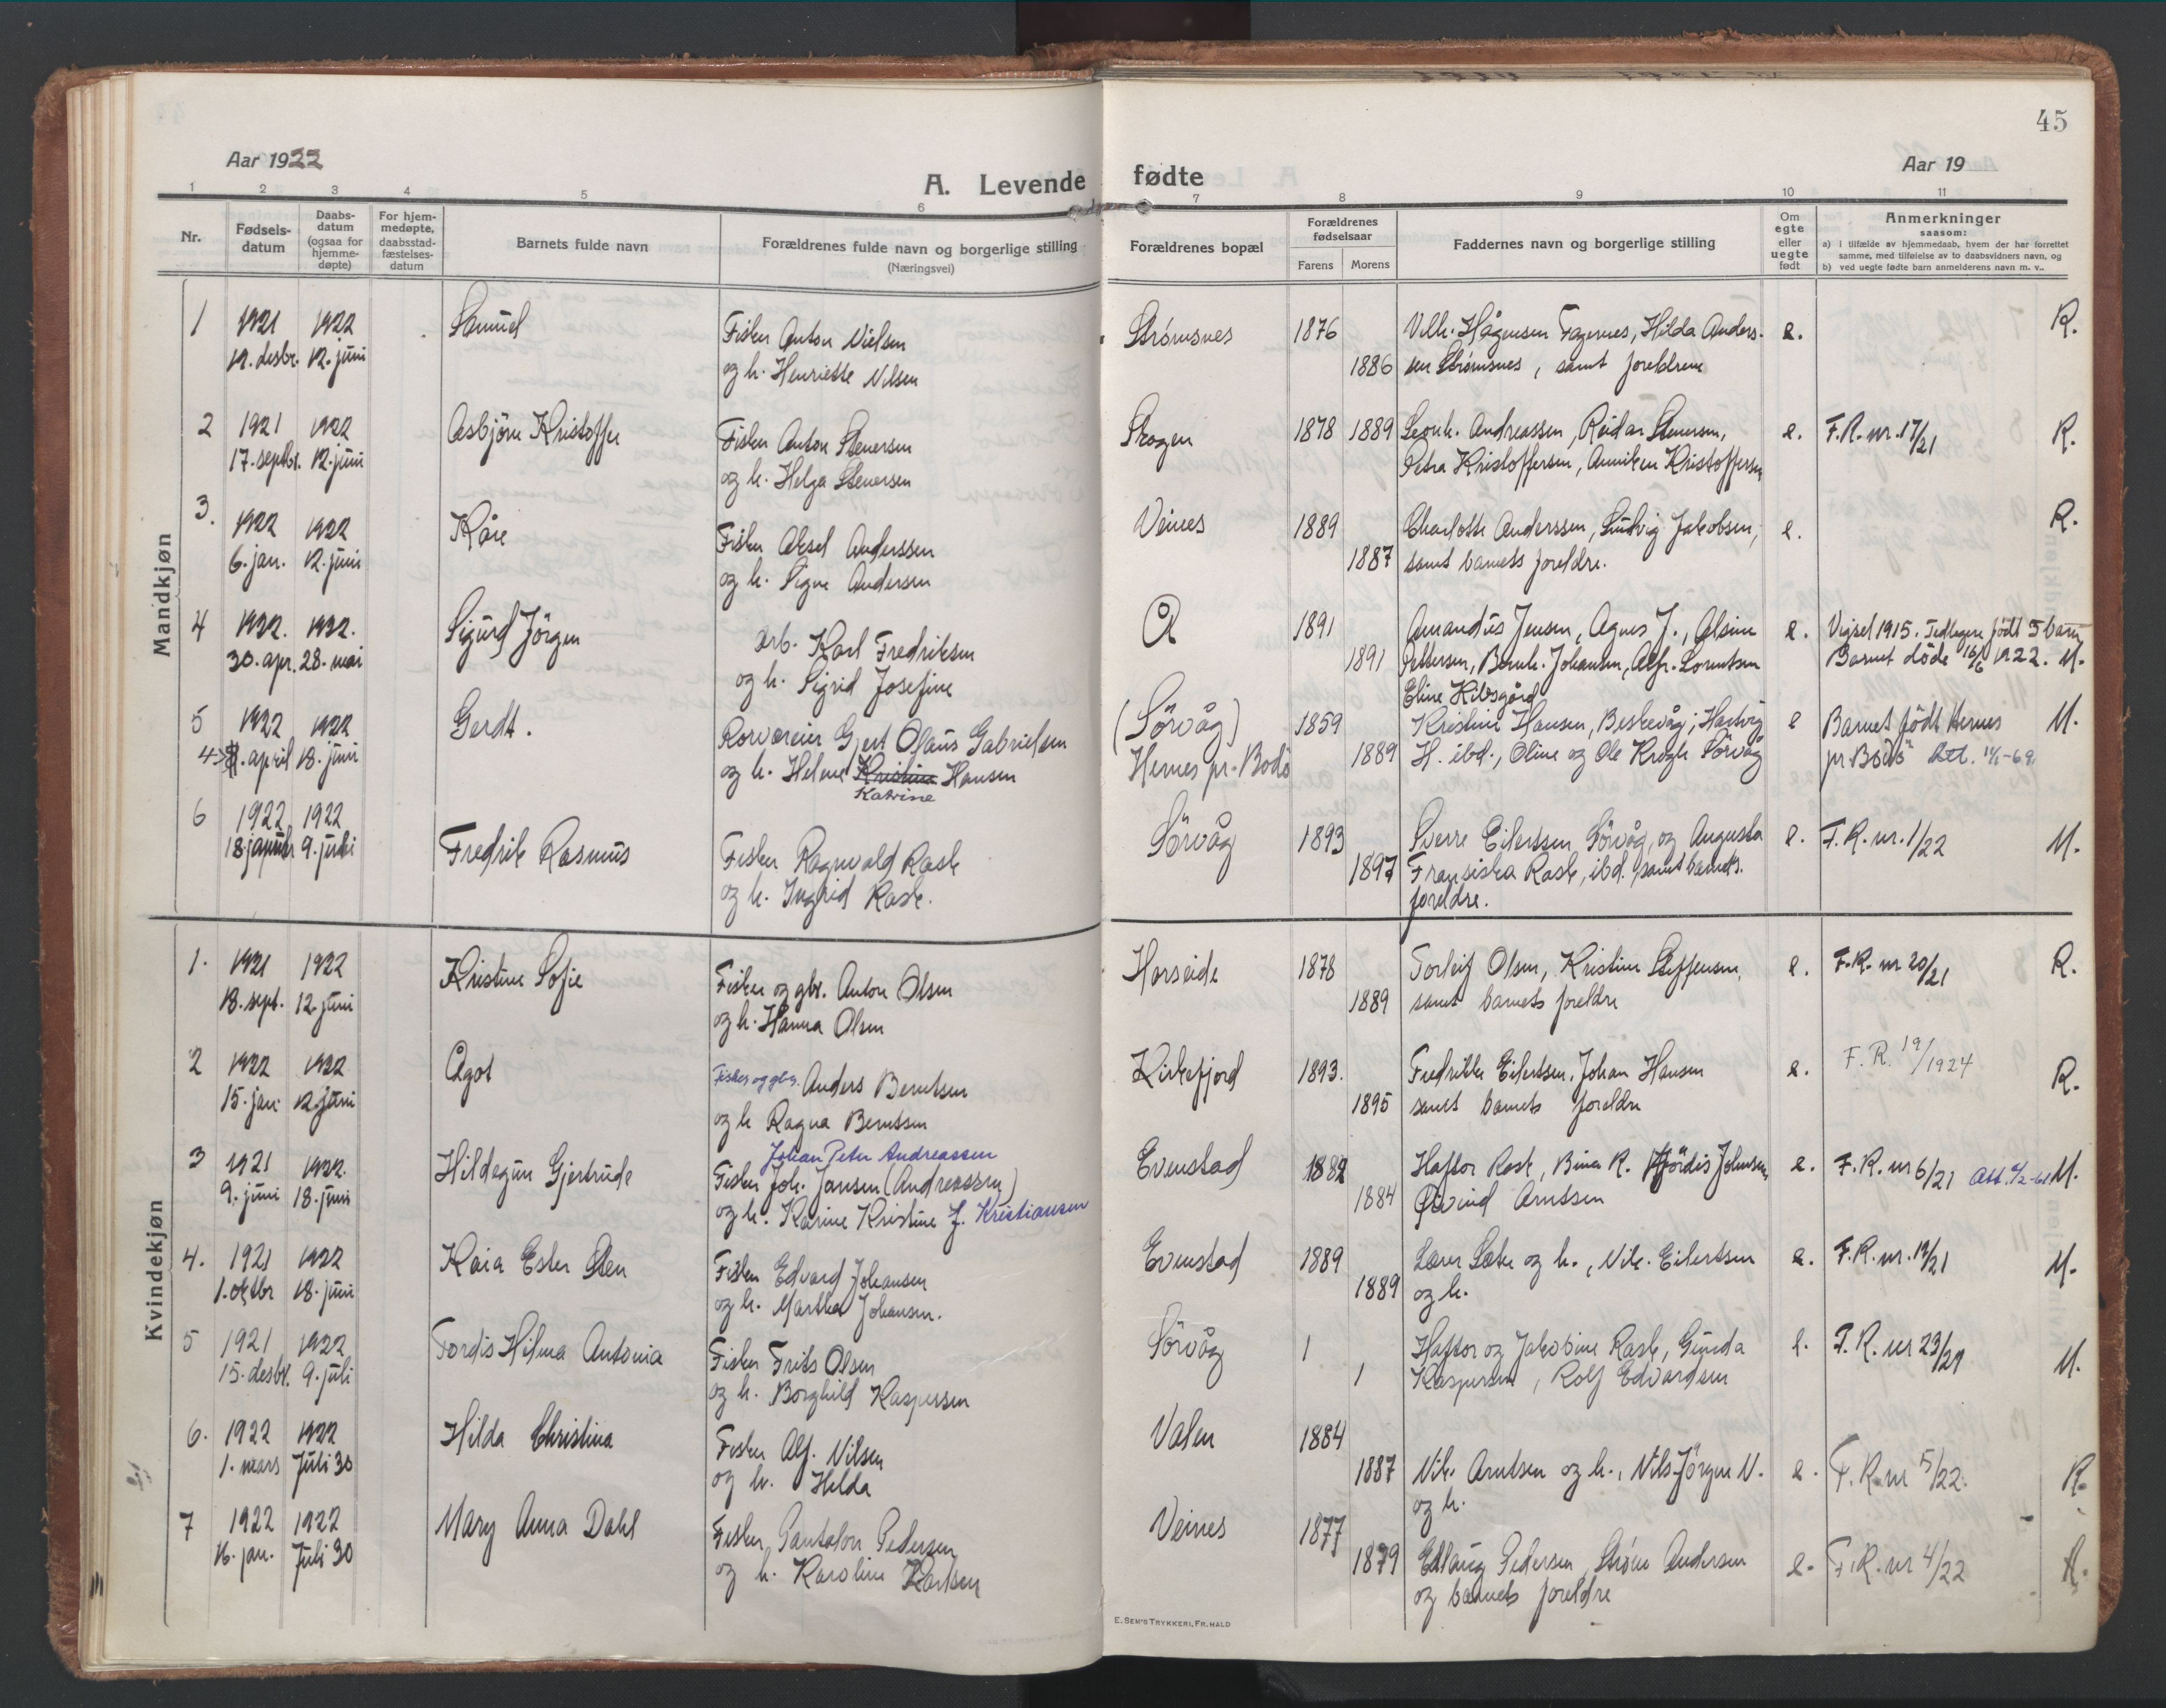 45
Aar 1922
Aar 19
A. Levende fødte
1 2 3 4 5 6 7 8 9 10 11
Nr.
Fødsels-
datum
Daabs-
datum
(ogsaa for
hjemme-
døpte)
For hjem-
medøpte,
daabsstad-
fæstelses-
datum
Barnets fulde navn
Forældrenes fulde navn og borgerlige stilling
(Næringsvei)
Forældrenes bopæl
Forældrenes
fødselsaar
Farens Morens
Faddernes navn og borgerlige stilling
Om
egte
eller
uegte
født
Anmerkninger
saasom:
a) i tilfælde av hjemmedaab, hvem der har forrettet
samme, med tilføielse av to daabsvidners navn, og
b) ved uegte fødte barn anmelderens navn m. v..
Mandkjøn
1 1921 1922 Samuel Fisker Anton Nielsen Strømsnes 1876 Vilh. Hågensen Fagernes, Hilda Anders- e. R.
12. desbr. 12. juni og h. Henriette Nilsen 1886 sen Strømsnes, samt foreldrene
2 1921 1922 Asbjörn Kristoffer Fisker Anton Stenersen Skogen 1878 1889 Leonh. Andreassen, Reidar Stenersen, e. F.R. nr. 17/21 R.
17. septbr. 12. juni og h. Helga Stenersen Petra Kristoffersen, Anniken Kristoffersen
3. 1922 1922 Kåre Fisker Aksel Anderssen Veines 1889 Charlotte Anderssen, Ludvig Jakobsen, e. R.
6. jan. 12. juni og h. Signe Andersen 1887 samt barnets foreldre.
4 1922. 1922. Sigurd Jörgen arb. Karl Fredriksen Å 1891 Amandus Jensen, Agnes J., Alsine e. Vigsel 1915. Tidligere født 5 barn
30. apr. 28. mai og h. Sigrid Josefine 1891 Pettersen, Bernh. Johansen, Alfr. Lorentsen Barnet döde 16/6 1922. M.
Eline Hilsgård
5 1922 1922 Gerdt. Rorværeier Gjert Olaus Gabrielsen (Sörvåg) 1859 Kristine Hansen, Beskevåg; Hartvig e Barnet födt Hernes M.
4 april 18. juni og h. Helene Kristine Hansen Hernes pr. Bodö 1889 H. ibd., Oline og Ole Krogh Sörvåg pr. Bodö Att. 11/1-69
Katrine
6 1922 1922 Fredrik Rasmus Fisker Ragnvald Rask Sörvåg 1893 Sverre Eilertsen Sörvåg, og Augusta e. F.R. nr. 1/22 M.
18 januar 9. juli og h. Ingrid Rask. 1897 Fransiska Rask, ibd. samt barnets
foreldre.
Kvindekjøn
1. 1921 1922 Kristine Sofie Fisker og gbr. Anton Olsen Horseide 1878 Torleif Olsen, Kristine Steffensen, e. F.R. nr 20/21 R.
18. sept. 12. juni og h. Hanna Olsen 1889 samt barnets foreldre
2 1922 1922 Ågot Fisker og gbr. Anders Berntsen Kirkefjord 1893. Fredrikke Eilertsen, Johan Hansen e. F.R. 19/1924 R.
15. jan. 12. juni og h Ragna Berntsen 1895 samt barnets foreldre
Johan Peter Andreassen
3 1921 1922. Hildegun Gjertrude Fisker Joh. Jansen (Andreassen) Evenstad 1882 Haftor Rask, Bina R. Hjördis Johansen, e. F.R. nr 6/21 Att. 4/2-61 M.
9. juni 18. juni og h. Karine Kristine J. Kristiansen 1884 Øivind Arntsen
4. 1921 1922 Kaia Ester Sten Fisker Edvard Johansen Evenstad 1889 Lærer Sæte og h., Nik. Eilertsen e. F.R. nr. 19/21 M.
1. oktbr 18. juni og h. Martha Johansen. 1889 og h.
5 1921 1922 Tordis Hilma Antonia Fisker Frits Olsen Sörvåg 1 Haftor og Jakobine Rask, Gunda e. F.R. nr 23/21 M.
15. desbr. 9. juli og h. Borghild Kaspersen 1 Kaspersen, Rolf Edvardsen
6. 1922 1922 Hilda Christina Fisker Alf. Nilsen Valen 1884
1. mars Juli 30 og h. Hilda 1887 Nik. Arntsen og h., Nils Jörgen N. e. F.R. nr 5/22. R.
og h.
7 1922 1922 Mary Anna Dahl Fisker Pantalon Pedersen Veines 1877
16. jan. Juli 30 og h. Karoline Karlsen 1879 Edlaug Pedersen, Ström Andersen e. F.R. nr 4/22 R.
og barnets foreldre
E. SEM'S TRYKKERI, FR.HALD